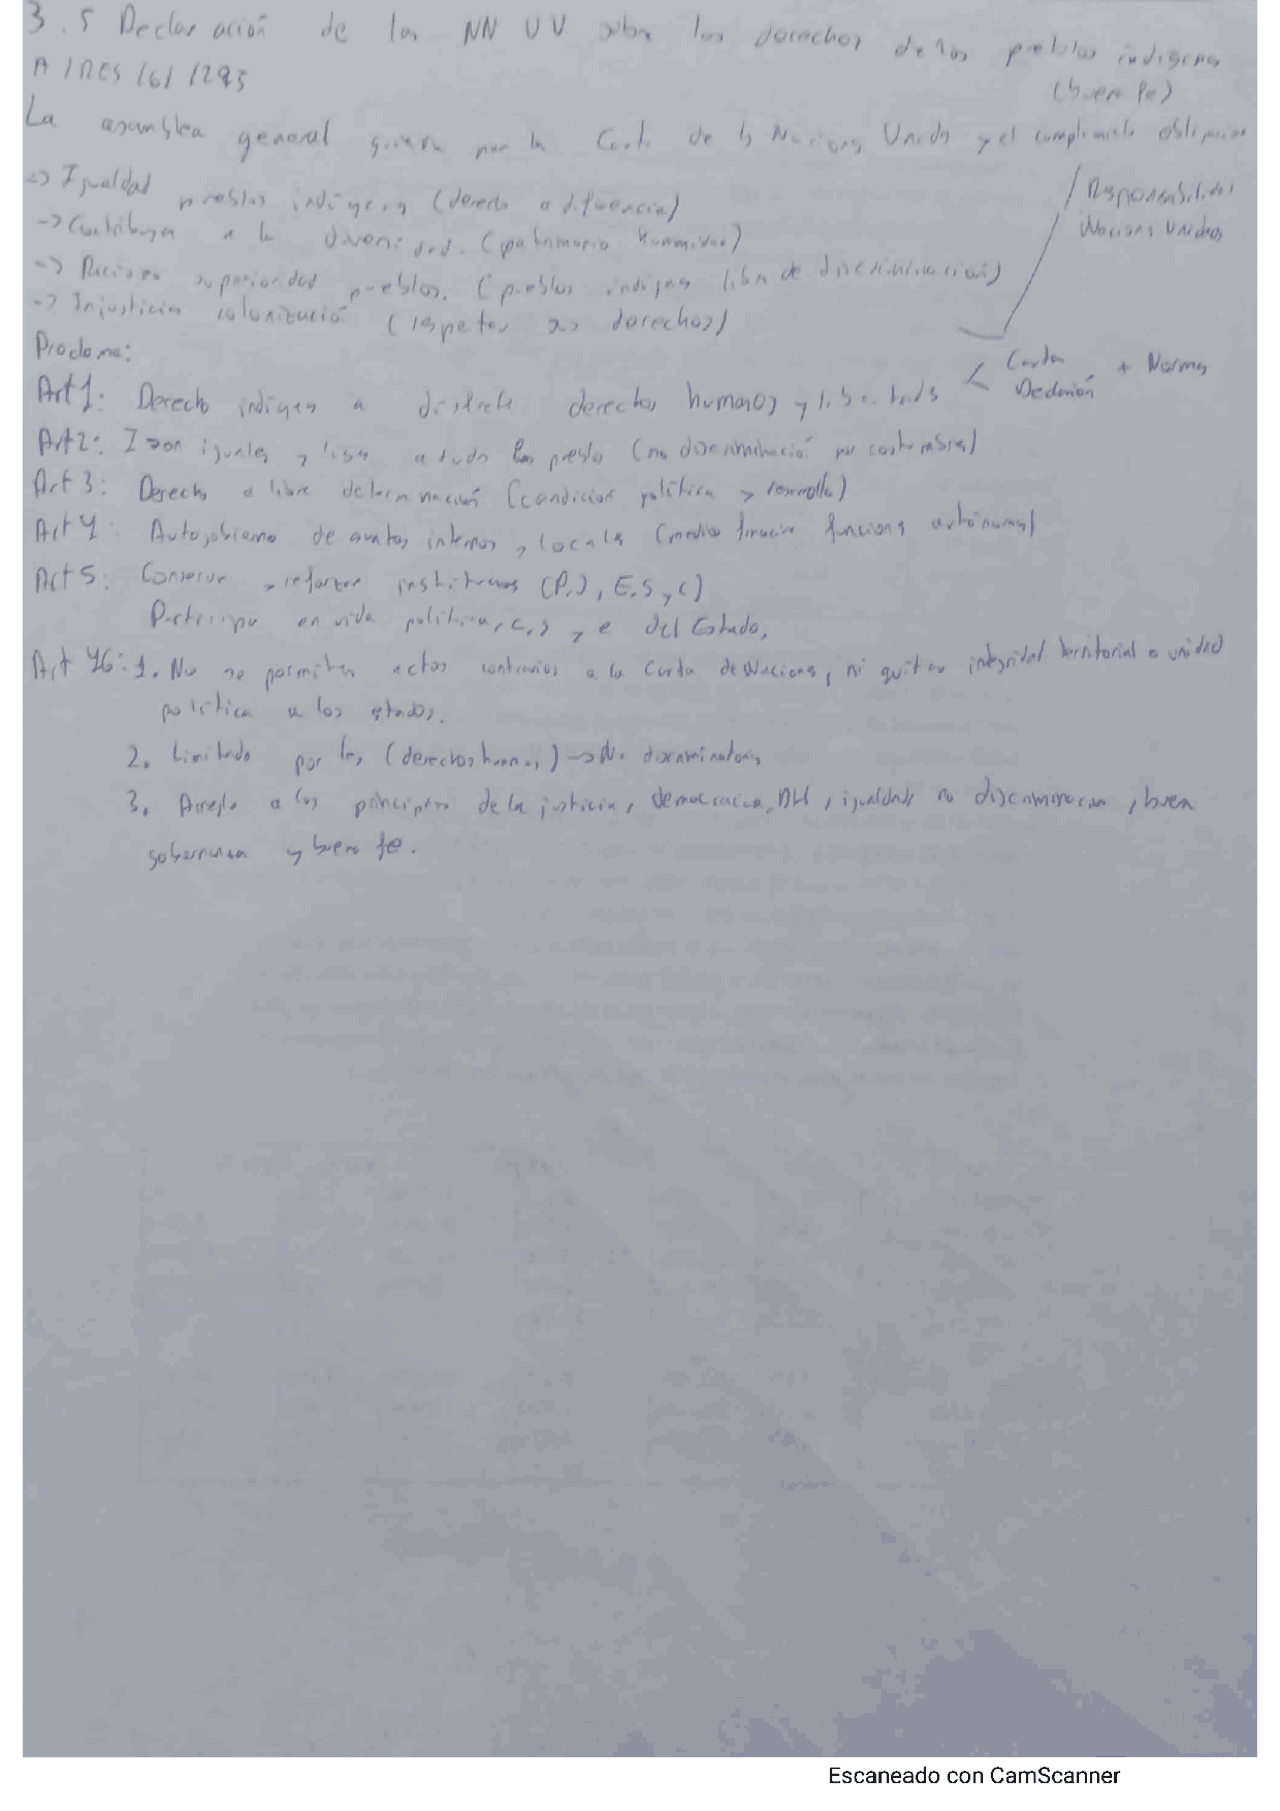 3.5 Declaración de las NN UU sobre los derechos de los pueblos indígenas
A/RES/61/295
(buena fe)
La asamblea general guiada por la Carta de las Naciones Unidas y el cumplimiento obligaciones
-> Igualdad pueblos indígenas (derecho a diferencia)
/ Responsabilidades Naciones Unidas
-> Contribuyen a la diversidad. (patrimonio humanidad)
-> superioridad pueblos. (pueblos indígenas libre de discriminación)
-> Injusticias colonización (respetar sus derechos)
Proclama:
Art 1: Derecho indígena a disfrute derechos humanos y libertads < Carta Declaración + Normas
Art 2: I son iguales y libres a todos los pueblo (no discriminación por costumbres)
Art 3: Derecho a libre determinación (condicion política y desarrollo)
Art 4: Autogobierno de asuntos internos y locales (medios financiar funciones autónomas)
Art 5: Conservar y reforzar instituciones (P,J,E,S y C)
Participar en vida política, c,s y e del Estado,
Art 46: 1. No se permiten actos contrarios a la Carta de Naciones, ni quitar integridad territorial o unidad
política a los estados.
2. Limitado por ley (derechos humanos) -> No discriminatorias
3. Arreglo a los principios de la justicia, democracia, DH, igualdad, no discriminación, buena
gobernanza y buena fe.
Escaneado con CamScanner